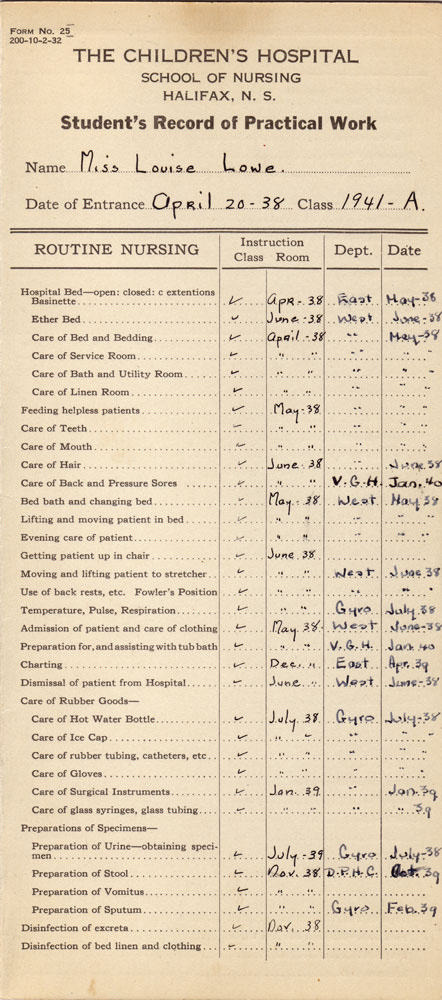 FORM NO. 25
200-10-2-32
THE CHILDREN'S HOSPITAL
SCHOOL OF NURSING
HALIFAX, N. S.
Student's Record of Practical Work
Name Miss Louise Lowe.
Date of Entrance April 20-38 Class 1941-A.
ROUTINE NURSING Instruction Class Room Dept. Date
Hospital Bed—open: closed: c extentions
Basinette ✓ Apr-38 East May-38
Ether Bed ✓ June-38 West June-38
Care of Bed and Bedding ✓ April-38 " " May-38
Care of Service Room ✓ " " " " " "
Care of Bath and Utility Room ✓ " " " " " "
Care of Linen Room ✓ " " " " " "
Feeding helpless patients ✓ May-38 " " " "
Care of Teeth ✓ " " " " " "
Care of Mouth ✓ " " " " " "
Care of Hair ✓ June 38 June 38
Care of Back and Pressure Sores ✓ " " V.G.H. Jan. 40
Bed bath and changing bed ✓ May-38 West May 38
Lifting and moving patient in bed ✓ " "
Evening care of patient ✓ " "
Getting patient up in chair ✓ June 38
Moving and lifting patient to stretcher ✓ " " West June 38
Use of back rests, etc. Fowler's Position ✓ " " " " " "
Temperature, Pulse, Respiration ✓ " " Gyro July 38
Admission of patient and care of clothing ✓ May 38 West June-38
Preparation for, and assisting with tub bath ✓ " " V.G.H. Jan 40
Charting ✓ Dec. " East Apr. 39
Dismissal of patient from Hospital ✓ June " West June-38
Care of Rubber Goods—
Care of Hot Water Bottle ✓ July 38 Gyro July-38
Care of Ice Cap ✓ " " " " " "
Care of rubber tubing, catheters, etc ✓ " " " " " "
Care of Gloves ✓ " " " " " "
Care of Surgical Instruments ✓ Jan. 39 Jan. 39
Care of glass syringes, glass tubing ✓ " " " " " 39
Preparations of Specimens—
Preparation of Urine—obtaining speci-
men ✓ July-39 Gyro July-38
Preparation of Stool ✓ Nov. 38 D.P.H.C. Oct. 39
Preparation of Vomitus ✓ " "
Preparation of Sputum ✓ " " Gyro Feb. 39
Disinfection of excreta ✓ Nov. 38
Disinfection of bed linen and clothing ✓ " "